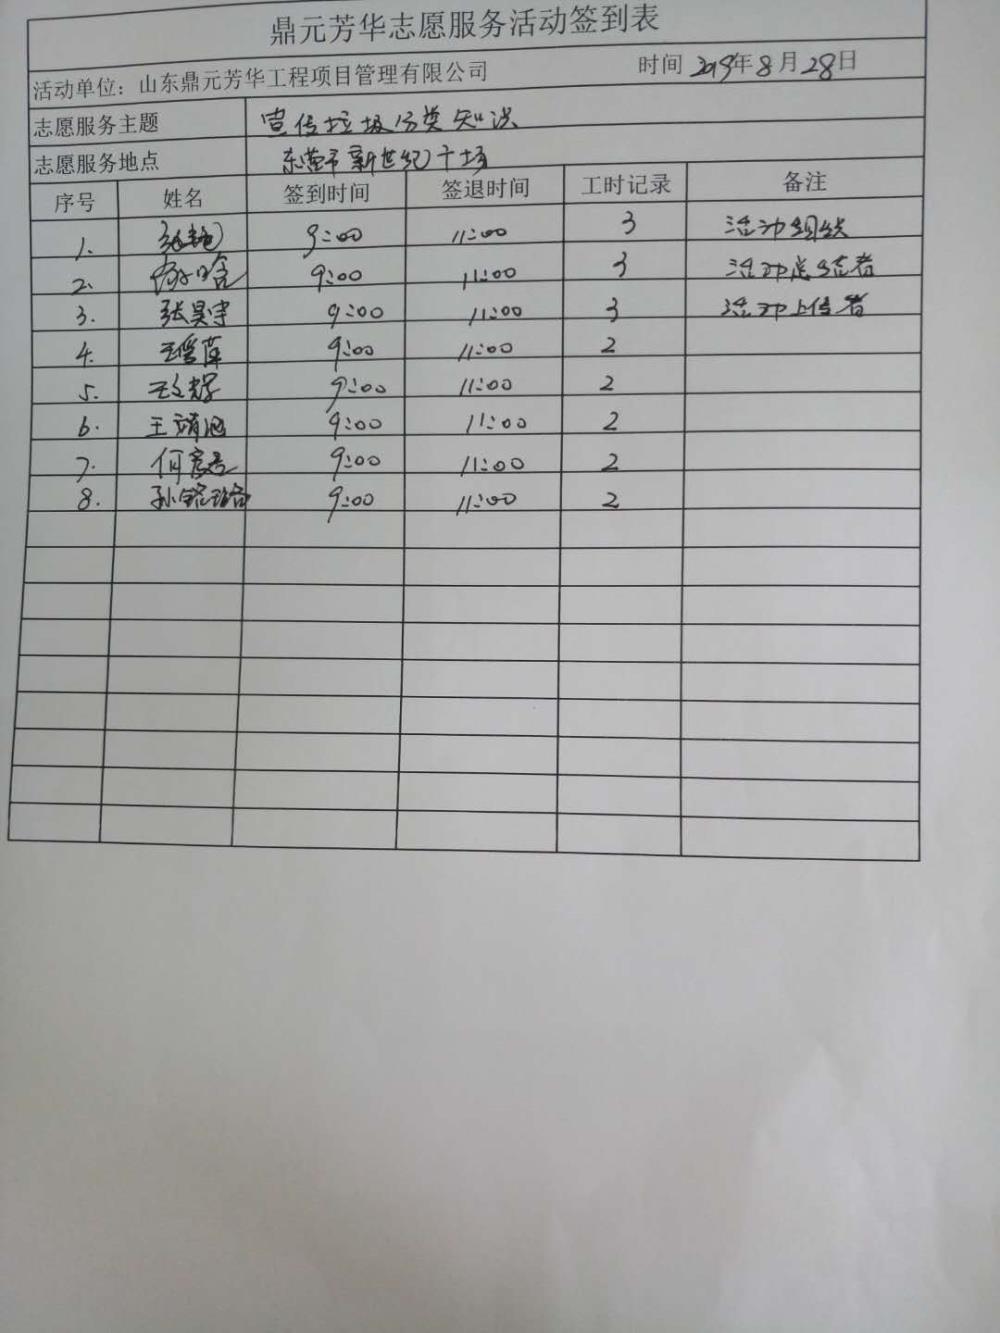 鼎元芳华志愿服务活动签到表
活动单位：山东鼎元芳华工程项目管理有限公司 时间 2019年8月28日
志愿服务主题 宣传垃圾分类知识
志愿服务地点 东营市新世纪广场
序号 姓名 签到时间 签退时间 工时记录 备注
1. 9:00 11:00 3 活动组织
2. 9:00 11:00 3 活动总结者
3. 张昊宇 9:00 11:00 3 活动上传者
4. 9:00 11:00 2
5. 9:00 11:00 2
6. 王靖涵 9:00 11:00 2
7. 9:00 11:00 2
8. 9:00 11:00 2